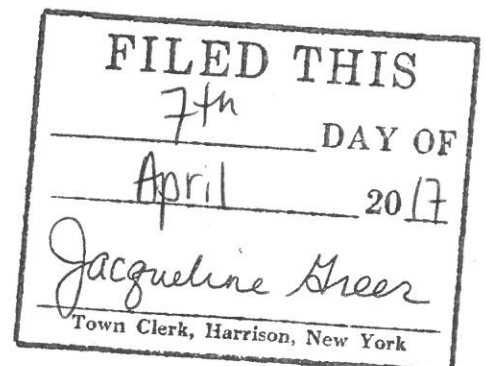 FILED THIS
7th
DAY OF
April 2017
Jacqueline Greer
Town Clerk, Harrison, New York